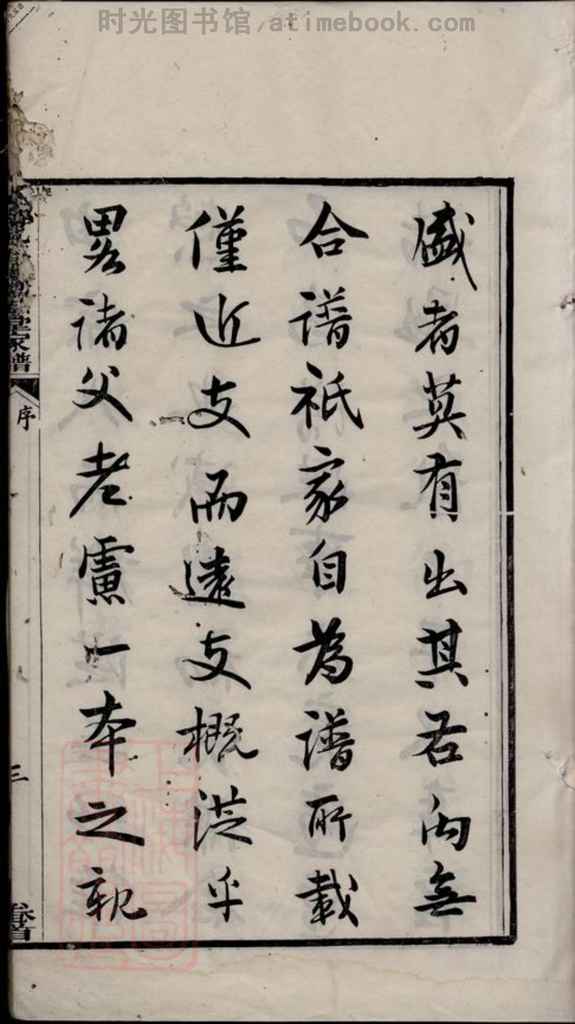 时光图书馆,atimebook.com
盛者莫有出其右向無
合譜祇家自為譜所載
僅近支而遠支概從乎
畧諸父老慮一本之親
家譜
序
三
卷首